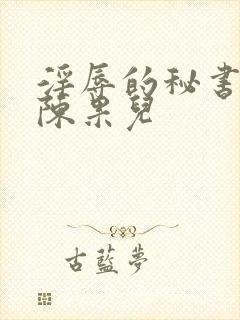 淫辱的秘書
陳果兒
古藍夢